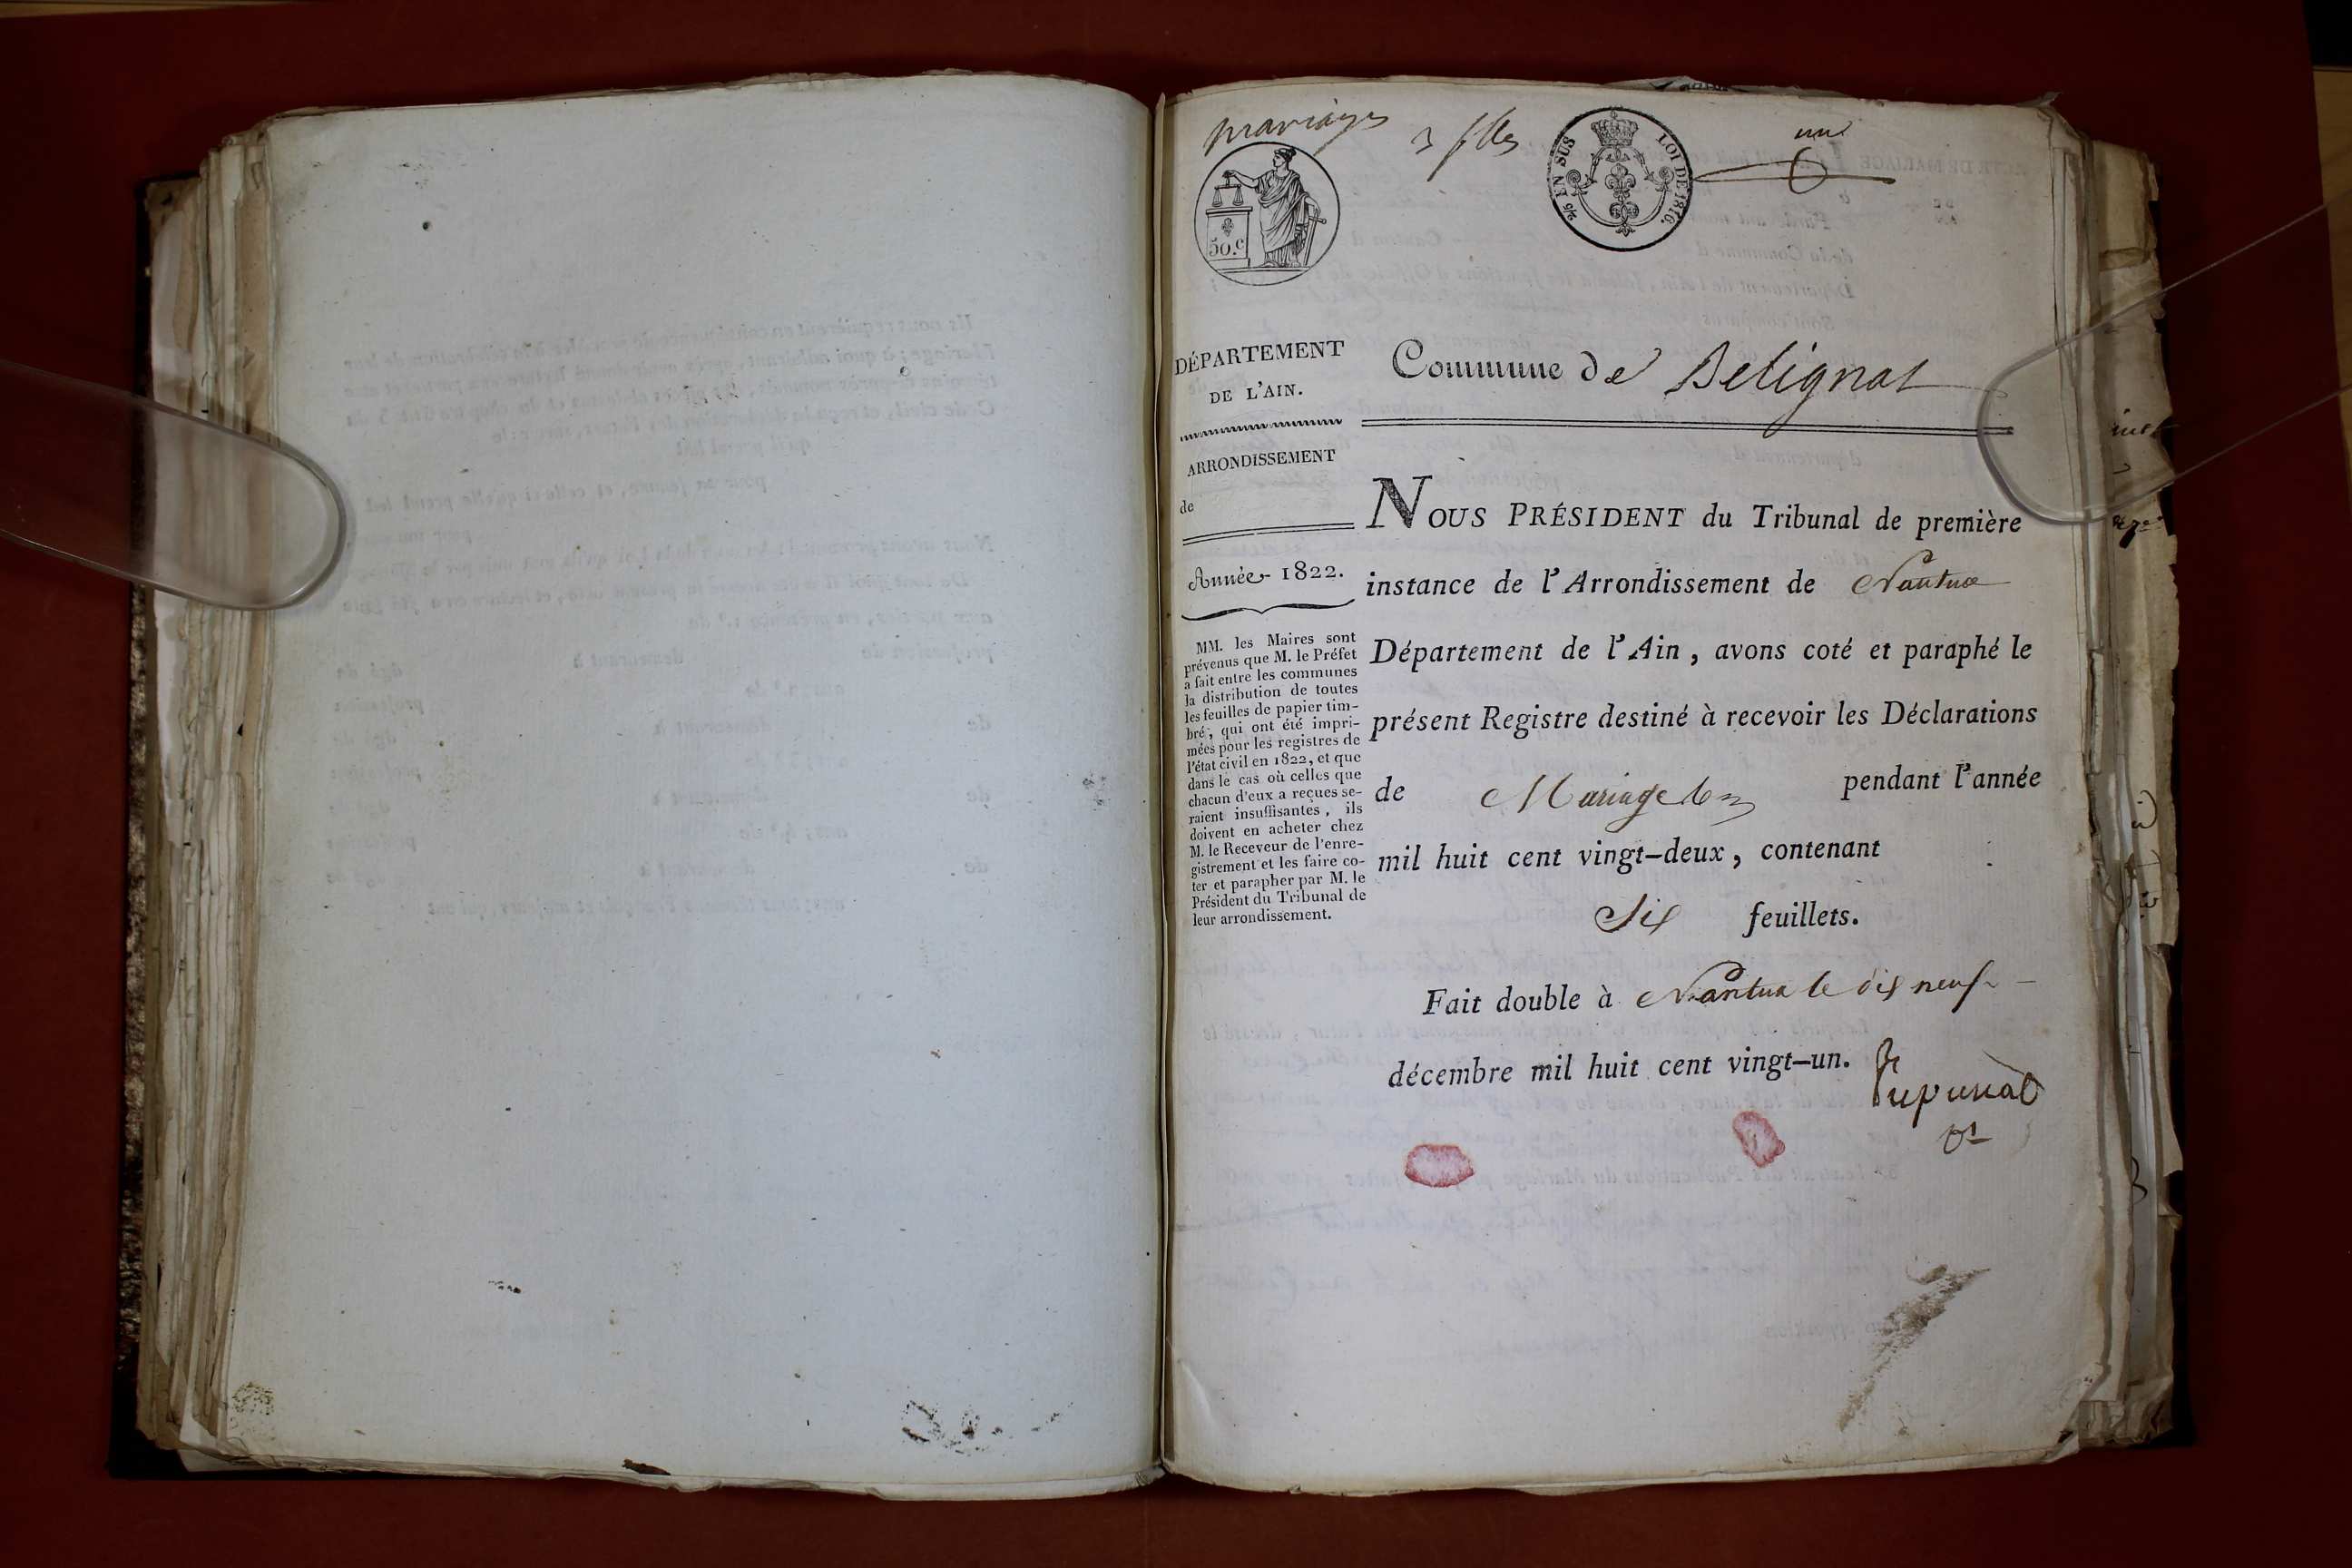 mariages
une
50.c
25 EN SUS LOI DE 1816.
DÉPARTEMENT
DE L'AIN.
ARRONDISSEMENT
de
Année 1822.
MM. les Maires sont
prévenus que M. le Préfet
a fait entre les communes
la distribution de toutes
les feuilles de papier tim-
bré, qui ont été impri-
mées pour les registres de
l'état civil en 1822, et que
dans le cas où celles que
chacun d'eux a reçues se-
raient insuffisantes, ils
doivent en acheter chez
M. le Receveur de l'enre-
gistrement et les faire co-
ter et parapher par M. le
Président du Tribunal de
leur arrondissement.
Commune de Belignat
NOUS PRÉSIDENT du Tribunal de première
instance de l'Arrondissement de Nantua
Département de l'Ain, avons coté et paraphé le
présent Registre destiné à recevoir les Déclarations
de Mariage pendant l'année
mil huit cent vingt-deux, contenant
Six feuillets.
Fait double à Nantua le dix neuf
décembre mil huit cent vingt-un.